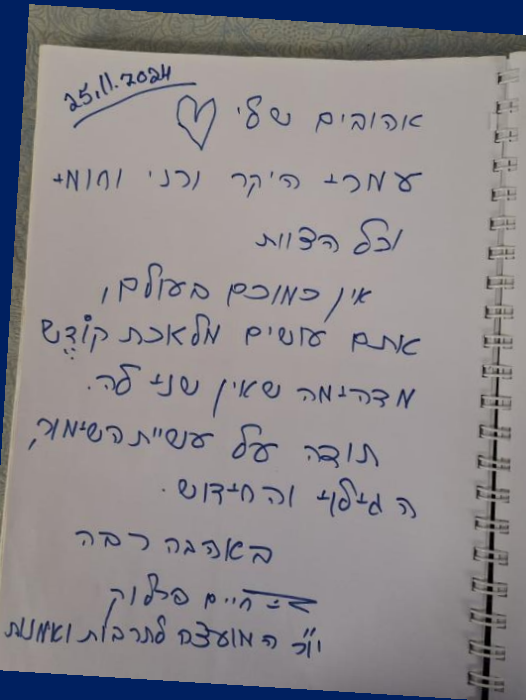 25.11.2024
אהובים שלי
עמרי היקר ורני ונומי
וכל הצוות
אין כמוכם בעולם,
אתם עושים מלאכת קוֹדֶש
מדהימה שאין שני לה.
תודה על עשיית השימור,
הגילוי והחידוש.
באהבה רבה
חיים פרלוק
יו"ר המועצה לתרבות ואמנות